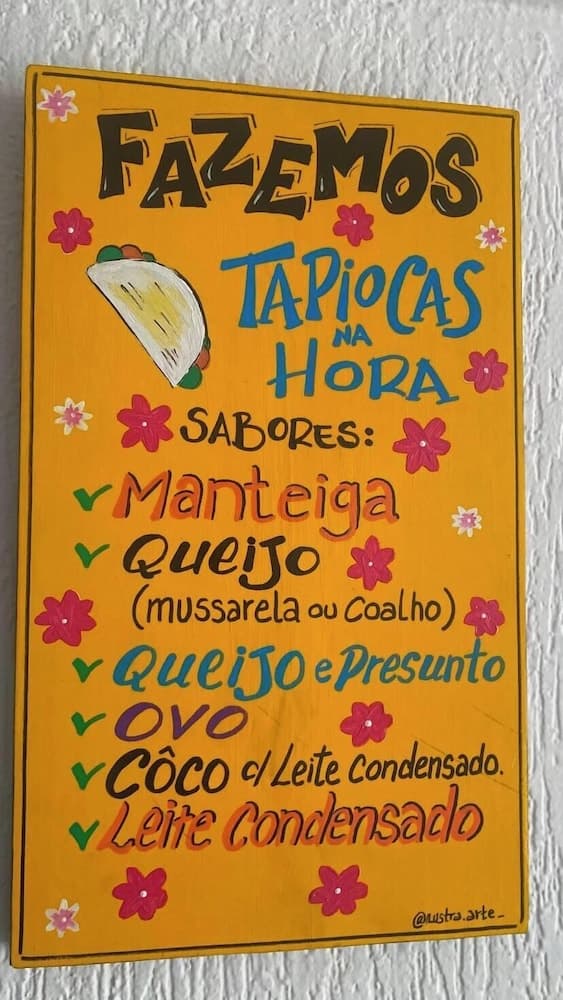 FAZEMOS
TAPIOCAS
NA
HORA
SABORES:
Manteiga
QUEIJO
(mussarela ou Coalho)
QUEIJO e Presunto
OVO
CÔCO c/ Leite Condensado.
Leite Condensado